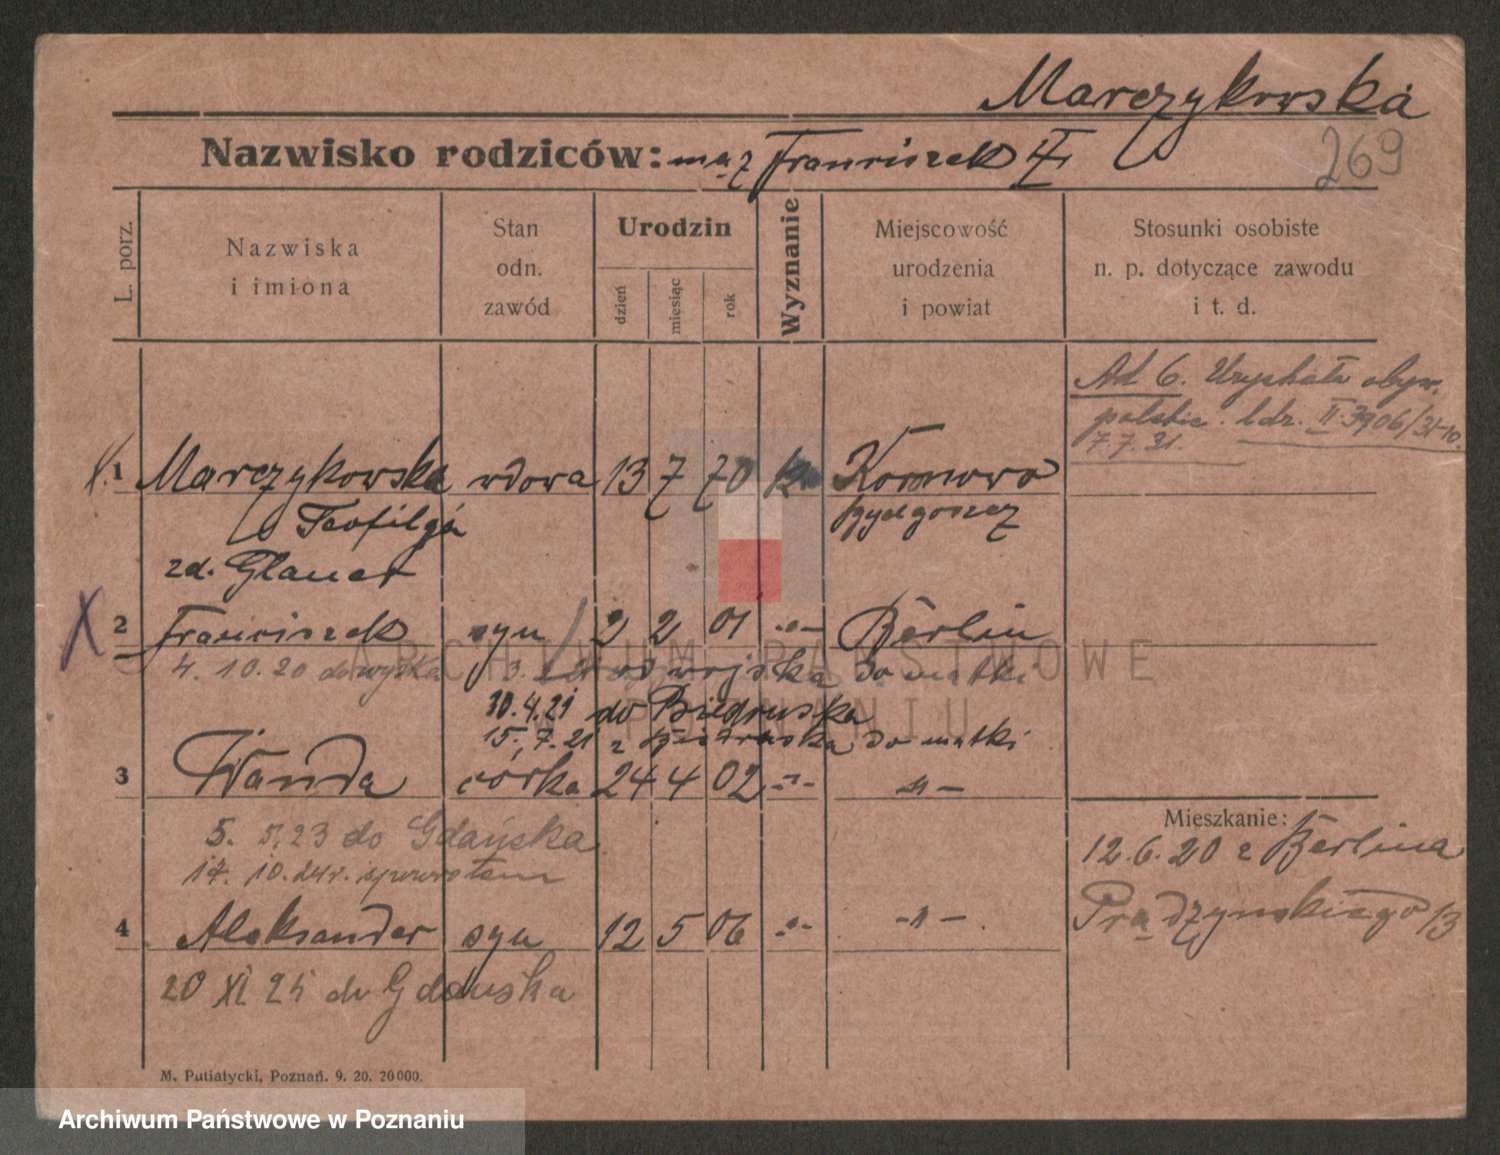 Marczykowska
Nazwisko rodziców: mąż Franciszek
269
L. porz.
Nazwiska
i imiona
Stan
odn.
zawód
Urodzin
dzień
miesiąc
rok
Wyznanie
Miejscowość
urodzenia
i powiat
Stosunki osobiste
n. p. dotyczące zawodu
i t. d.
Ad 6. Uzyskała obyw.
polskie. ldz. II. 3906/31
7.7.31.
1 Marczykowska wdowa 13 7 70
Teofilja Bydgoszcz
zd. Glauer
2 Franciszek syn 2 2 01 -"- Berlin
4. 10. 20 do wojska z wojska do matki
10.4.21 do Biedruska
15. 7. 21 z Biedruska do matki
3 Wanda córka 24 4 02 -"- -"-
5. 5.23 do Gdańska
17. 10. 24 r. spowrotem
Mieszkanie:
12.6.20 z Berlina
Prądzyńskiego 13
4 Aleksander syn 12 5 06 -"- -"-
20 XI 25 do Gdańska
M. Putiatycki, Poznań. 9. 20. 20000.
ARCHIWUM PAŃSTWOWE
W POZNANIU
Archiwum Państwowe w Poznaniu